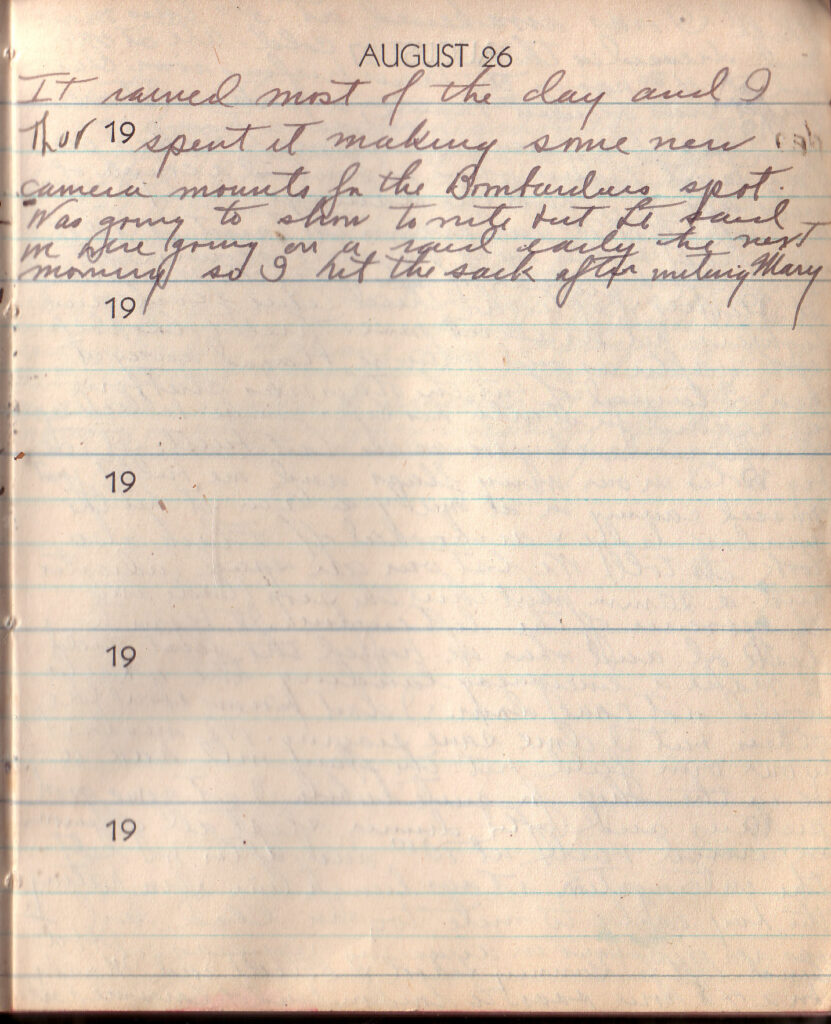 AUGUST 26
It rained most of the day and I
Thur 19 spent it making some new
camera mounts for the Bombardiers spot.
Was going to show tonite but Lt said
we were going on a raid early the next
morning so I hit the sack after writing Mary
19
19
19
19